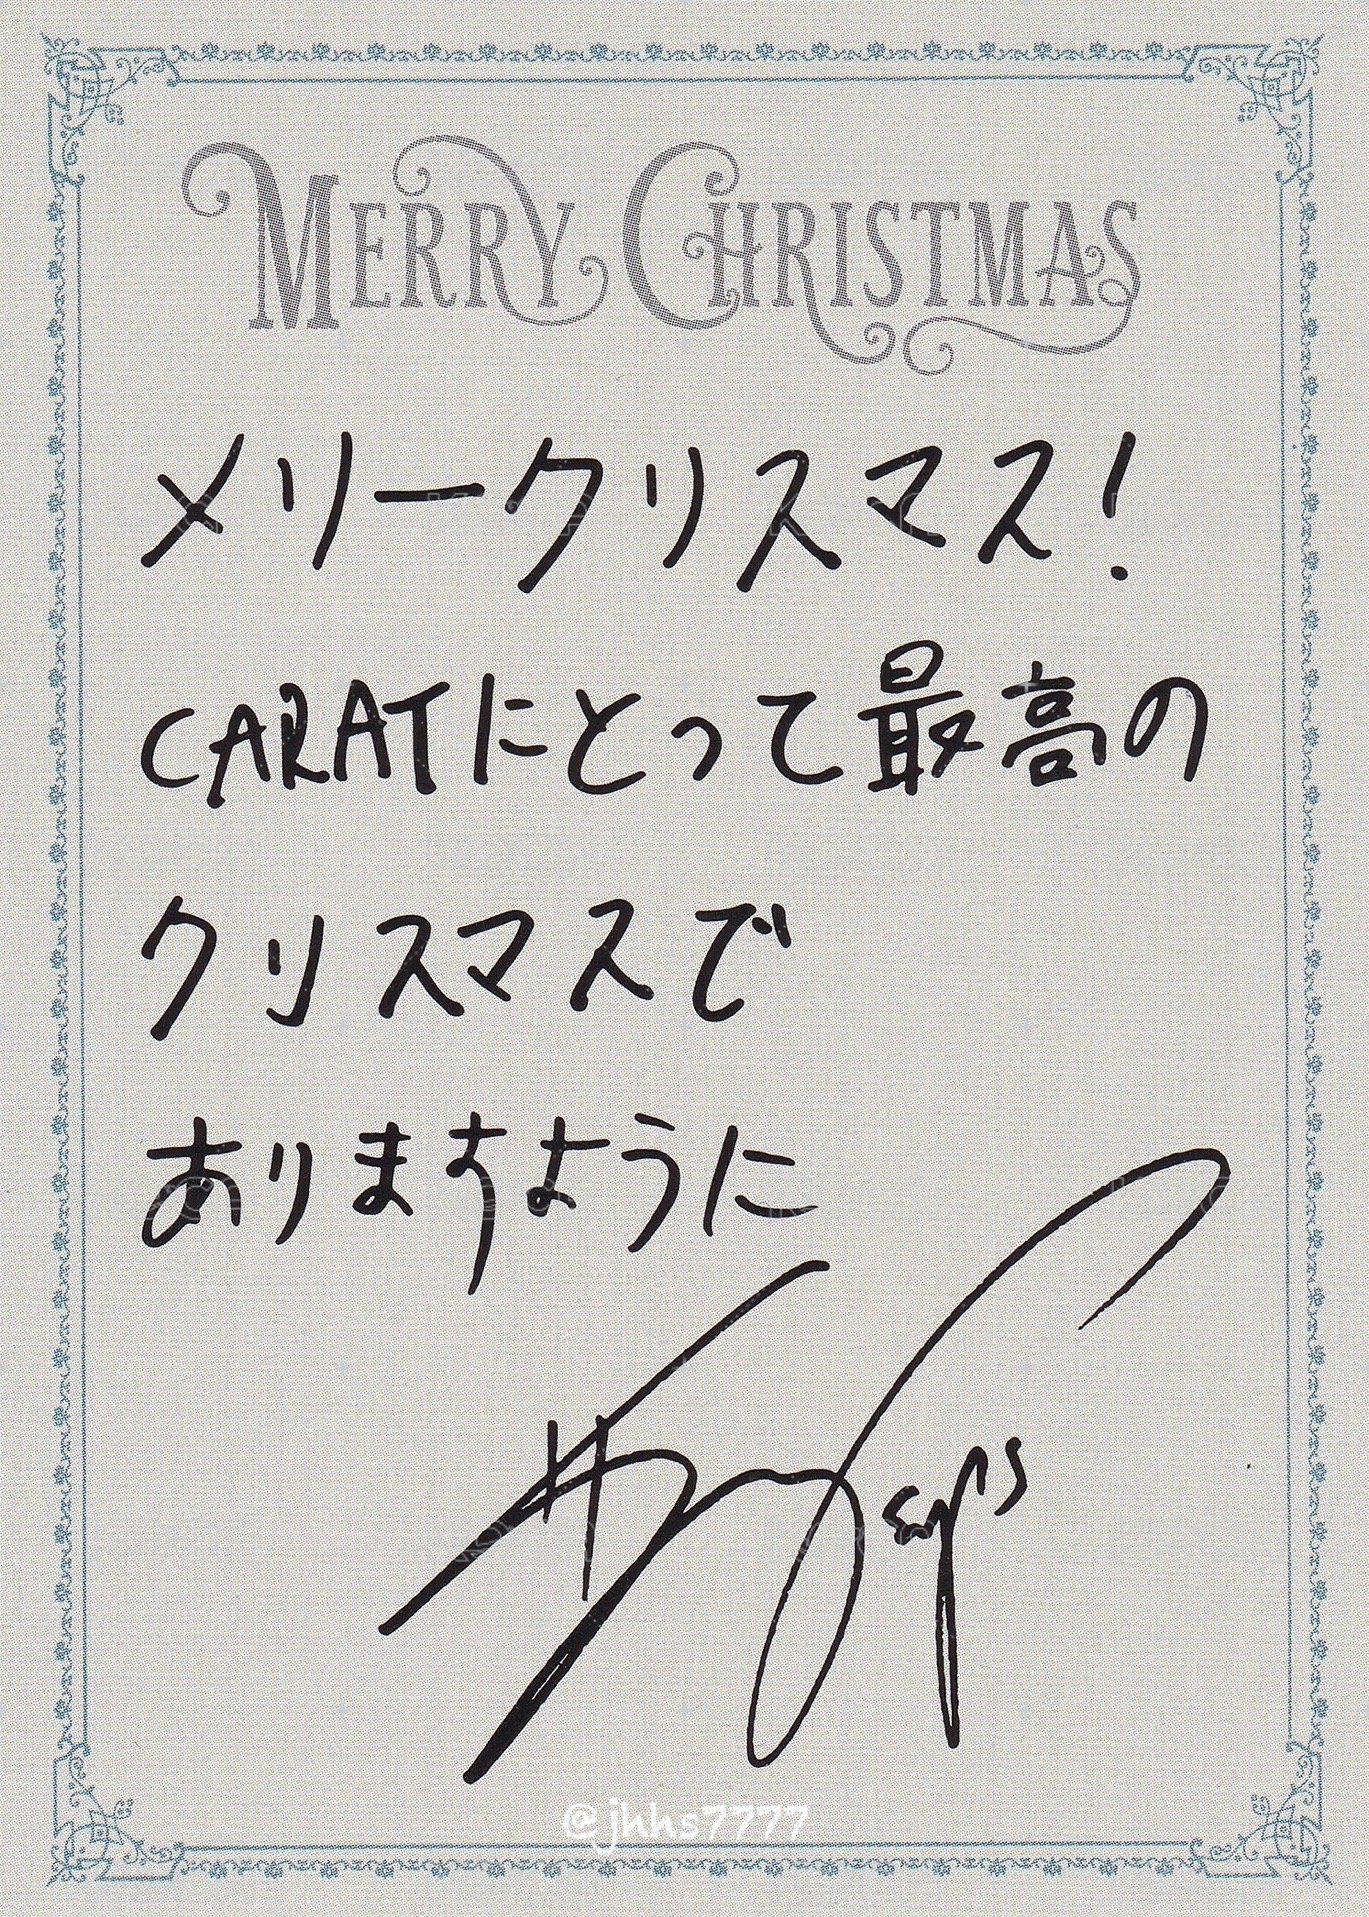 MERRY CHRISTMAS
メリークリスマス!
CARATにとって最高の
クリスマスで
ありますように
@jhhs7777